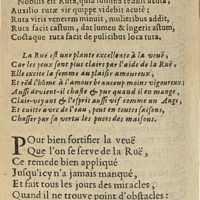 Nobilis est Ruta, quia lumina reddit acuta;
Auxilio rutæ vir quippe videbit acutè;
Ruta viris venerem minuit, mulieribus addit,
Ruta facit castum, dat lumen & ingerit astum,
Coctaque ruta facit de pulicibus loca tuta.
La Ruë est une plante excellente à la veuë,
Car les yeux sont plus clairs par l'aide de la Ruë,
Elle excite la femme au plaisir amoureux,
Et rēd l'hõme à l'amour beaucoup moins vigoureux;
Aussi devient-il chaste & pur quand il en mange,
Clair-voyant & l'esprit aussi vif comme un Ange,
Et cuitte avec de l'eau, peut en toutes saisons,
Chasser par sa vertu les puces des maisons.
Pour bien fortifier la veuë
Que l'on se serve de la Ruë,
Ce remede bien appliqué
Jusqu'icy n'a jamais manqué,
Et fait tous les jours des miracles,
Quand il ne trouve point d'obstacles: